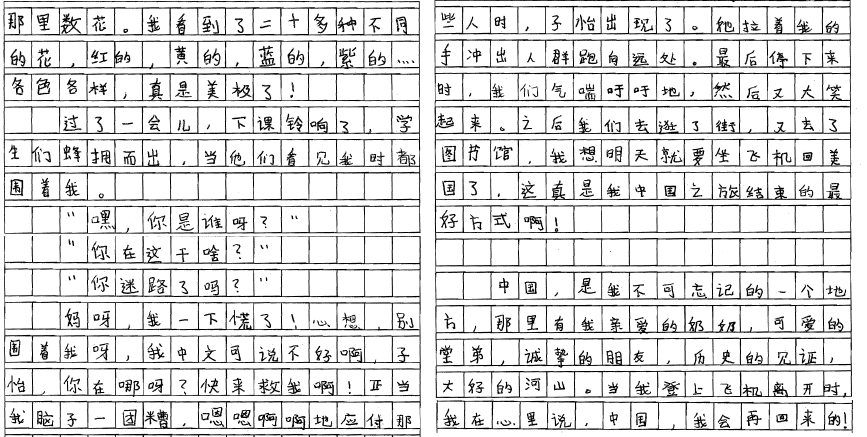 那里数花。我看到了二十多种不同
的花，红的，黄的，蓝的，紫的……
各色各样，真是美极了！
过了一会儿，下课铃响了，学
生们蜂拥而出，当他们看见我时都
围着我。
“嘿，你是谁呀？”
“你在这干啥？”
“你迷路了吗？”
妈呀，我一下慌了！心想，别
围着我呀，我中文可说不好啊，子
怡，你在哪呀？快来救我啊！正当
我脑子一团糟，嗯嗯啊啊地应付那
些人时，子怡出现了。她拉着我的
手冲出人群跑向远处。最后停下来
时，我们气喘吁吁地，然后又大笑
起来。之后我们去逛了街，又去了
图书馆，我想明天就要坐飞机回美
国了，这真是我中国之旅结束的最
好方式啊！
中国，是我不可忘记的一个地
方，那里有我亲爱的奶奶，可爱的
堂弟，诚挚的朋友，历史的见证，
大好的河山。当我登上飞机离开时，
我在心里说，中国，我会再回来的！